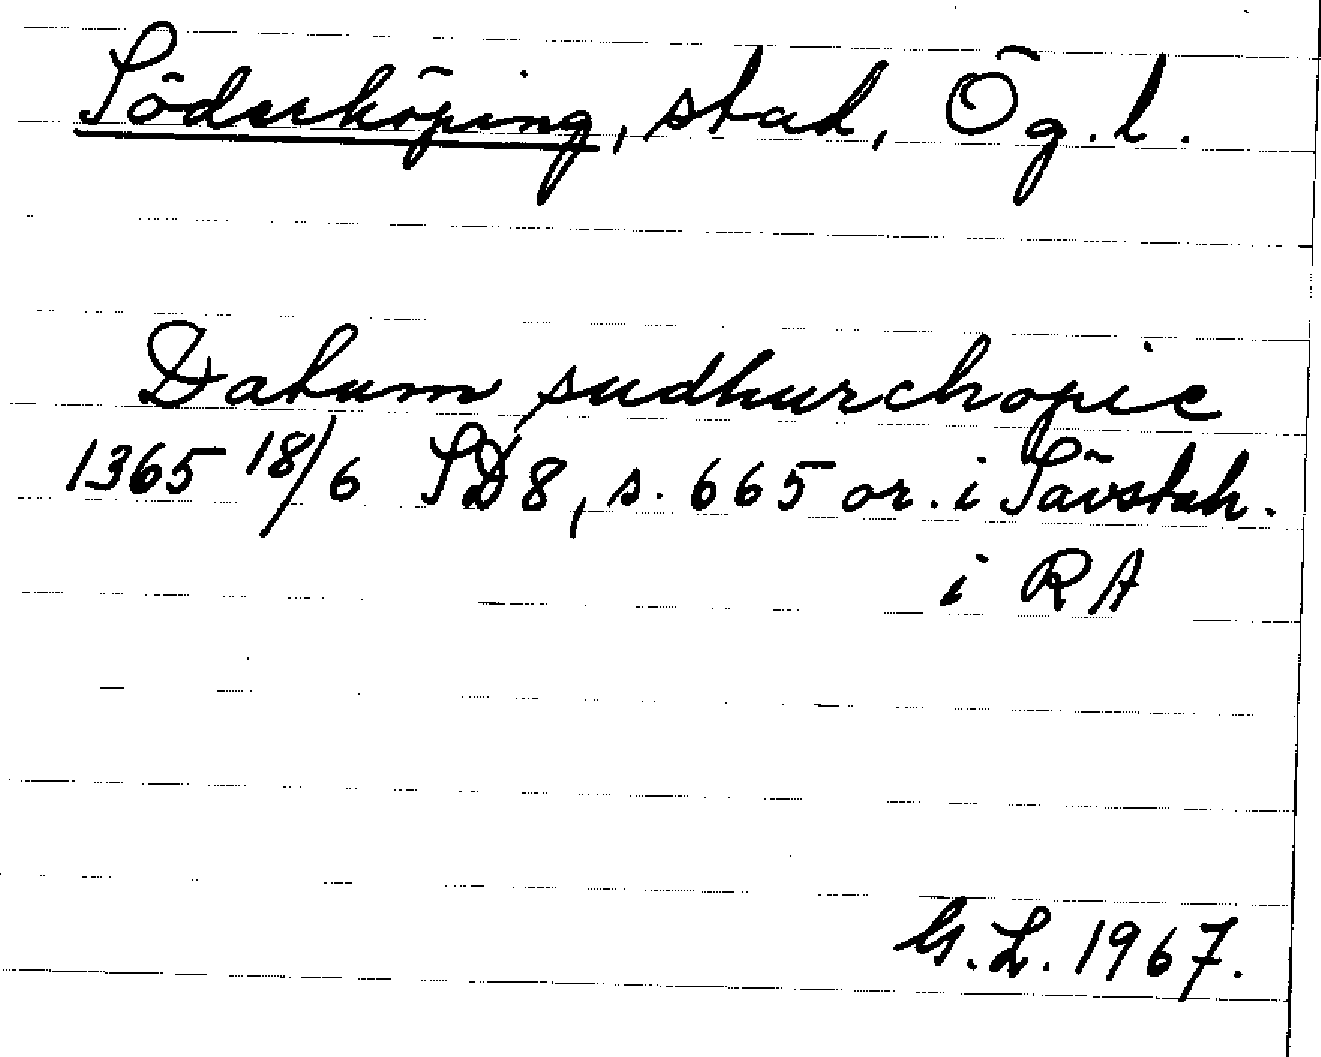 Söderköping, stad, Ög. l.
Datum sudhurchopie
1365 18/6 SD 8, s. 665 or. i Sävstah.
i RA
G. L. 1967.